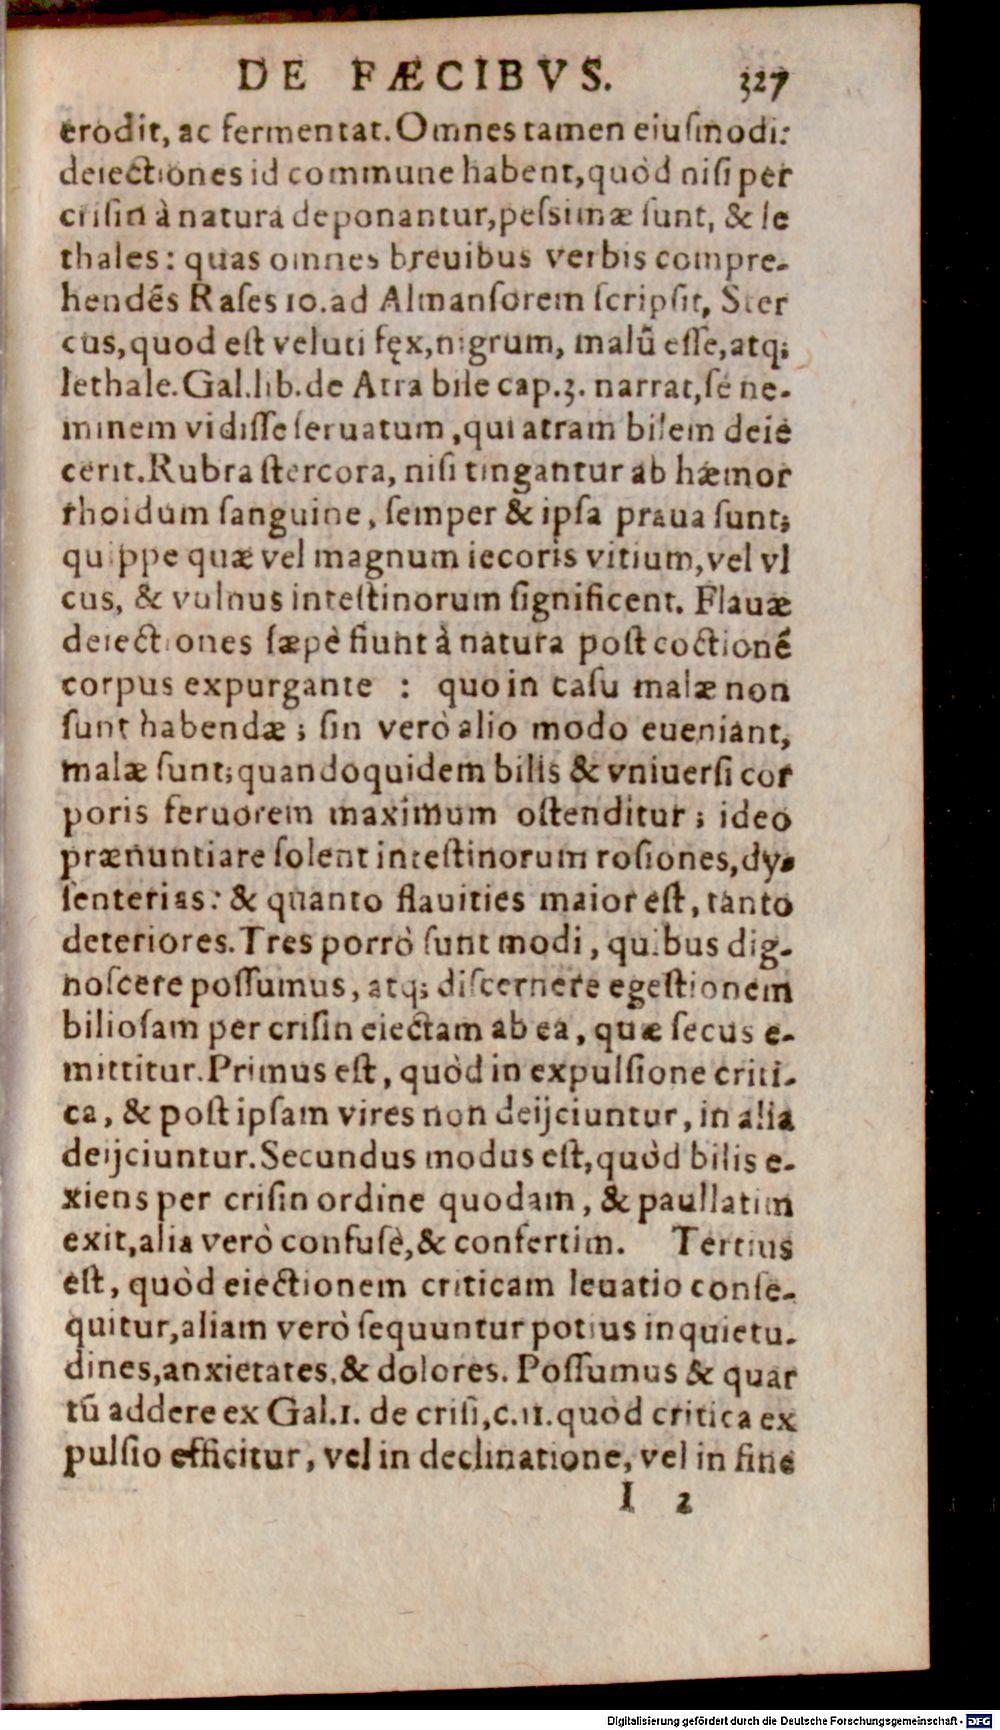 DE FÆCIBVS. 327
erodit, ac fermentat. Omnes tamen eiuſmodi:
deiectiones id commune habent, quòd niſi per
criſin à natura deponantur, peſsimæ ſunt, & le
thales: quas omnes breuibus verbis compre-
hendẽs Raſes 10. ad Almanſorem ſcripſit, Ster
cus, quod eſt veluti fęx, nigrum, malũ eſſe, atq;
lethale. Gal. lib. de Atra bile cap. 3. narrat, ſe ne-
minem vidiſſe ſeruatum, qui atram bilem deie
cerit. Rubra ſtercora, niſi tingantur ab hæmor
rhoidum ſanguine, ſemper & ipſa praua ſunt;
quippe quæ vel magnum iecoris vitium, vel vl
cus, & vulnus inteſtinorum ſignificent. Flauæ
deiectiones ſæpè fiunt à natura poſt coctionẽ
corpus expurgante : quo in caſu malæ non
ſunt habendæ; ſin verò alio modo eueniant,
malæ ſunt; quandoquidem bilis & vniuerſi cor
poris feruorem maximum oſtenditur; ideo
prænuntiare ſolent inteſtinorum roſiones, dy-
ſenterias: & quanto flauities maior eſt, tanto
deteriores. Tres porrò ſunt modi, quibus dig-
noſcere poſſumus, atq; diſcernere egeſtionem
bilioſam per criſin eiectam ab ea, quæ ſecus e-
mittitur. Primus eſt, quòd in expulſione criti-
ca, & poſt ipſam vires non deijciuntur, in alia
deijciuntur. Secundus modus eſt, quòd bilis e-
xiens per criſin ordine quodam, & paullatim
exit, alia verò confuſè, & confertim. Tertius
eſt, quòd eiectionem criticam leuatio conſe-
quitur, aliam verò ſequuntur potius inquietu-
dines, anxietates, & dolores. Poſſumus & quar
tũ addere ex Gal. 1. de criſi, c. 11. quòd critica ex
pulſio efficitur, vel in declinatione, vel in fine
I 2
Digitalisierung gefördert durch die Deutsche Forschungsgemeinschaft - DFG